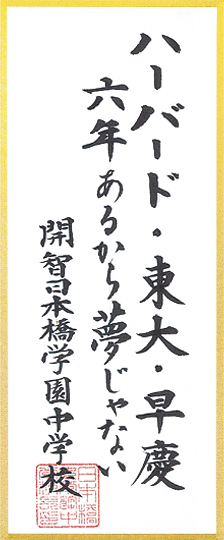 ハーバード・東大・早慶
六年あるから夢じゃない
開智日本橋学園中学校